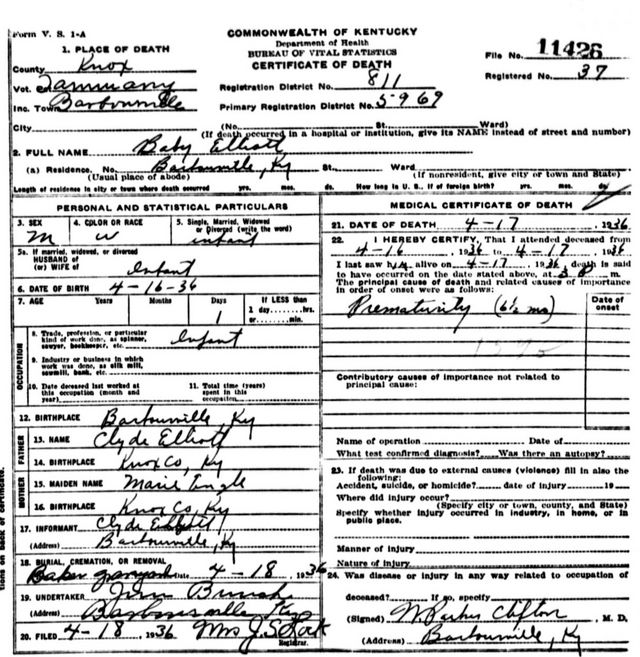 Form V. S. 1-A
COMMONWEALTH OF KENTUCKY
Department of Health
BUREAU OF VITAL STATISTICS
CERTIFICATE OF DEATH
File No. 11426
Registered No. 37
1. PLACE OF DEATH
County Knox
Vot. Tammany
Inc. Town Barbourville
Registration District No. 811
Primary Registration District No. 5969
City (No. St. Ward)
(If death occurred in a hospital or institution, give its NAME instead of street and number)
2. FULL NAME Baby Elliott
(a) Residence. No. Barbourville, Ky St. Ward
(Usual place of abode) (If nonresident, give city or town and State)
Length of residence in city or town where death occurred yrs. mos. ds. How long in U. S., if of foreign birth? yrs. mos. ds.
PERSONAL AND STATISTICAL PARTICULARS
3. SEX 4. COLOR OR RACE 5. Single, Married, Widowed
or Divorced (write the word)
M W infant
5a. If married, widowed, or divorced
HUSBAND of
(or) WIFE of Infant
6. DATE OF BIRTH 4-16-36
7. AGE Years Months Days If LESS than
1 day hrs.
or min.
1
OCCUPATION
8. Trade, profession, or particular
kind of work done, as spinner,
sawyer, bookkeeper, etc. Infant
9. Industry or business in which
work was done, as silk mill,
sawmill, bank, etc.
10. Date deceased last worked at
this occupation (month and
year)
11. Total time (years)
spent in this
occupation
12. BIRTHPLACE Barbourville Ky
FATHER
13. NAME Clyde Elliott
14. BIRTHPLACE Knox Co, Ky
MOTHER
15. MAIDEN NAME Marie Engle
16. BIRTHPLACE Knox Co, Ky
17. INFORMANT Clyde Elliott
(Address) Barbourville, Ky
18. BURIAL, CREMATION, OR REMOVAL
Baker graveyard Date 4-18 1936
19. UNDERTAKER
(Address) Barbourville Ky
20. FILED 4-18, 1936 Mrs J. S.
Registrar.
MEDICAL CERTIFICATE OF DEATH
21. DATE OF DEATH 4-17, 1936
22. I HEREBY CERTIFY, That I attended deceased from
4-16, 1936 to 4-17, 1936
I last saw him alive on 4-17, 1936, death is said
to have occurred on the date stated above, at m.
The principal cause of death and related causes of importance
in order of onset were as follows:
Date of
onset
Prematurity (6½ mo)
Contributory causes of importance not related to
principal cause:
Name of operation Date of
What test confirmed diagnosis? Was there an autopsy?
23. If death was due to external causes (violence) fill in also the
following:
Accident, suicide, or homicide? date of injury 19
Where did injury occur?
(Specify city or town, county, and State)
Specify whether injury occurred in industry, in home, or in
public place.
Manner of injury
Nature of injury
24. Was disease or injury in any way related to occupation of
deceased? If so, specify
(Signed) W. Parker Clifton, M. D.
(Address) Barbourville, Ky
tions on back of certificate.